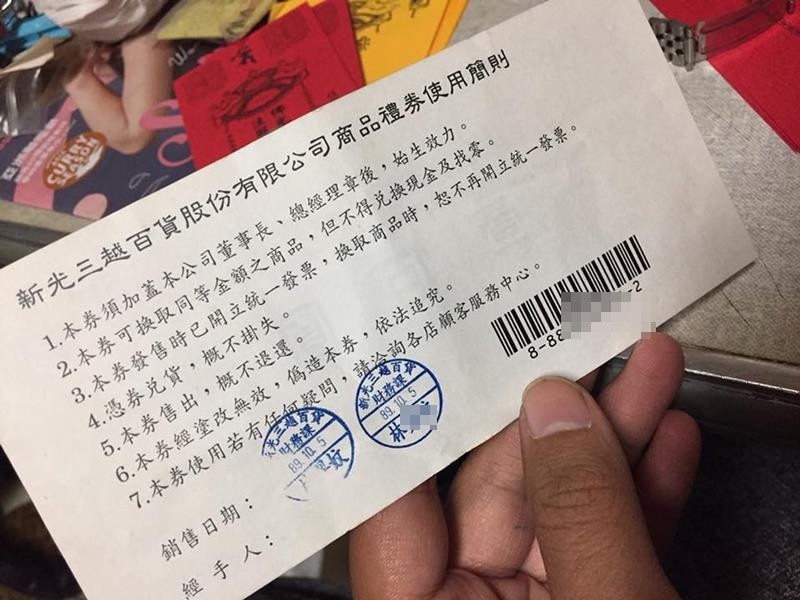 新光三越百貨股份有限公司商品禮券使用簡則
1.本券須加蓋本公司董事長、總經理章後，始生效力。
2.本券可換取同等金額之商品，但不得兌換現金及找零。
3.本券發售時已開立統一發票，換取商品時，恕不再開立統一發票。
4.憑券兌貨，概不掛失。
5.本券售出，概不退還。
6.本券經塗改無效，偽造本券，依法追究。
7.本券使用若有任何疑問，請洽詢各店顧客服務中心。
8-88
-2
光三越百
財務課
89.10.5
玟
新光三越百
財務課
89.10.5
林
銷售日期：
經手人：
SURREY